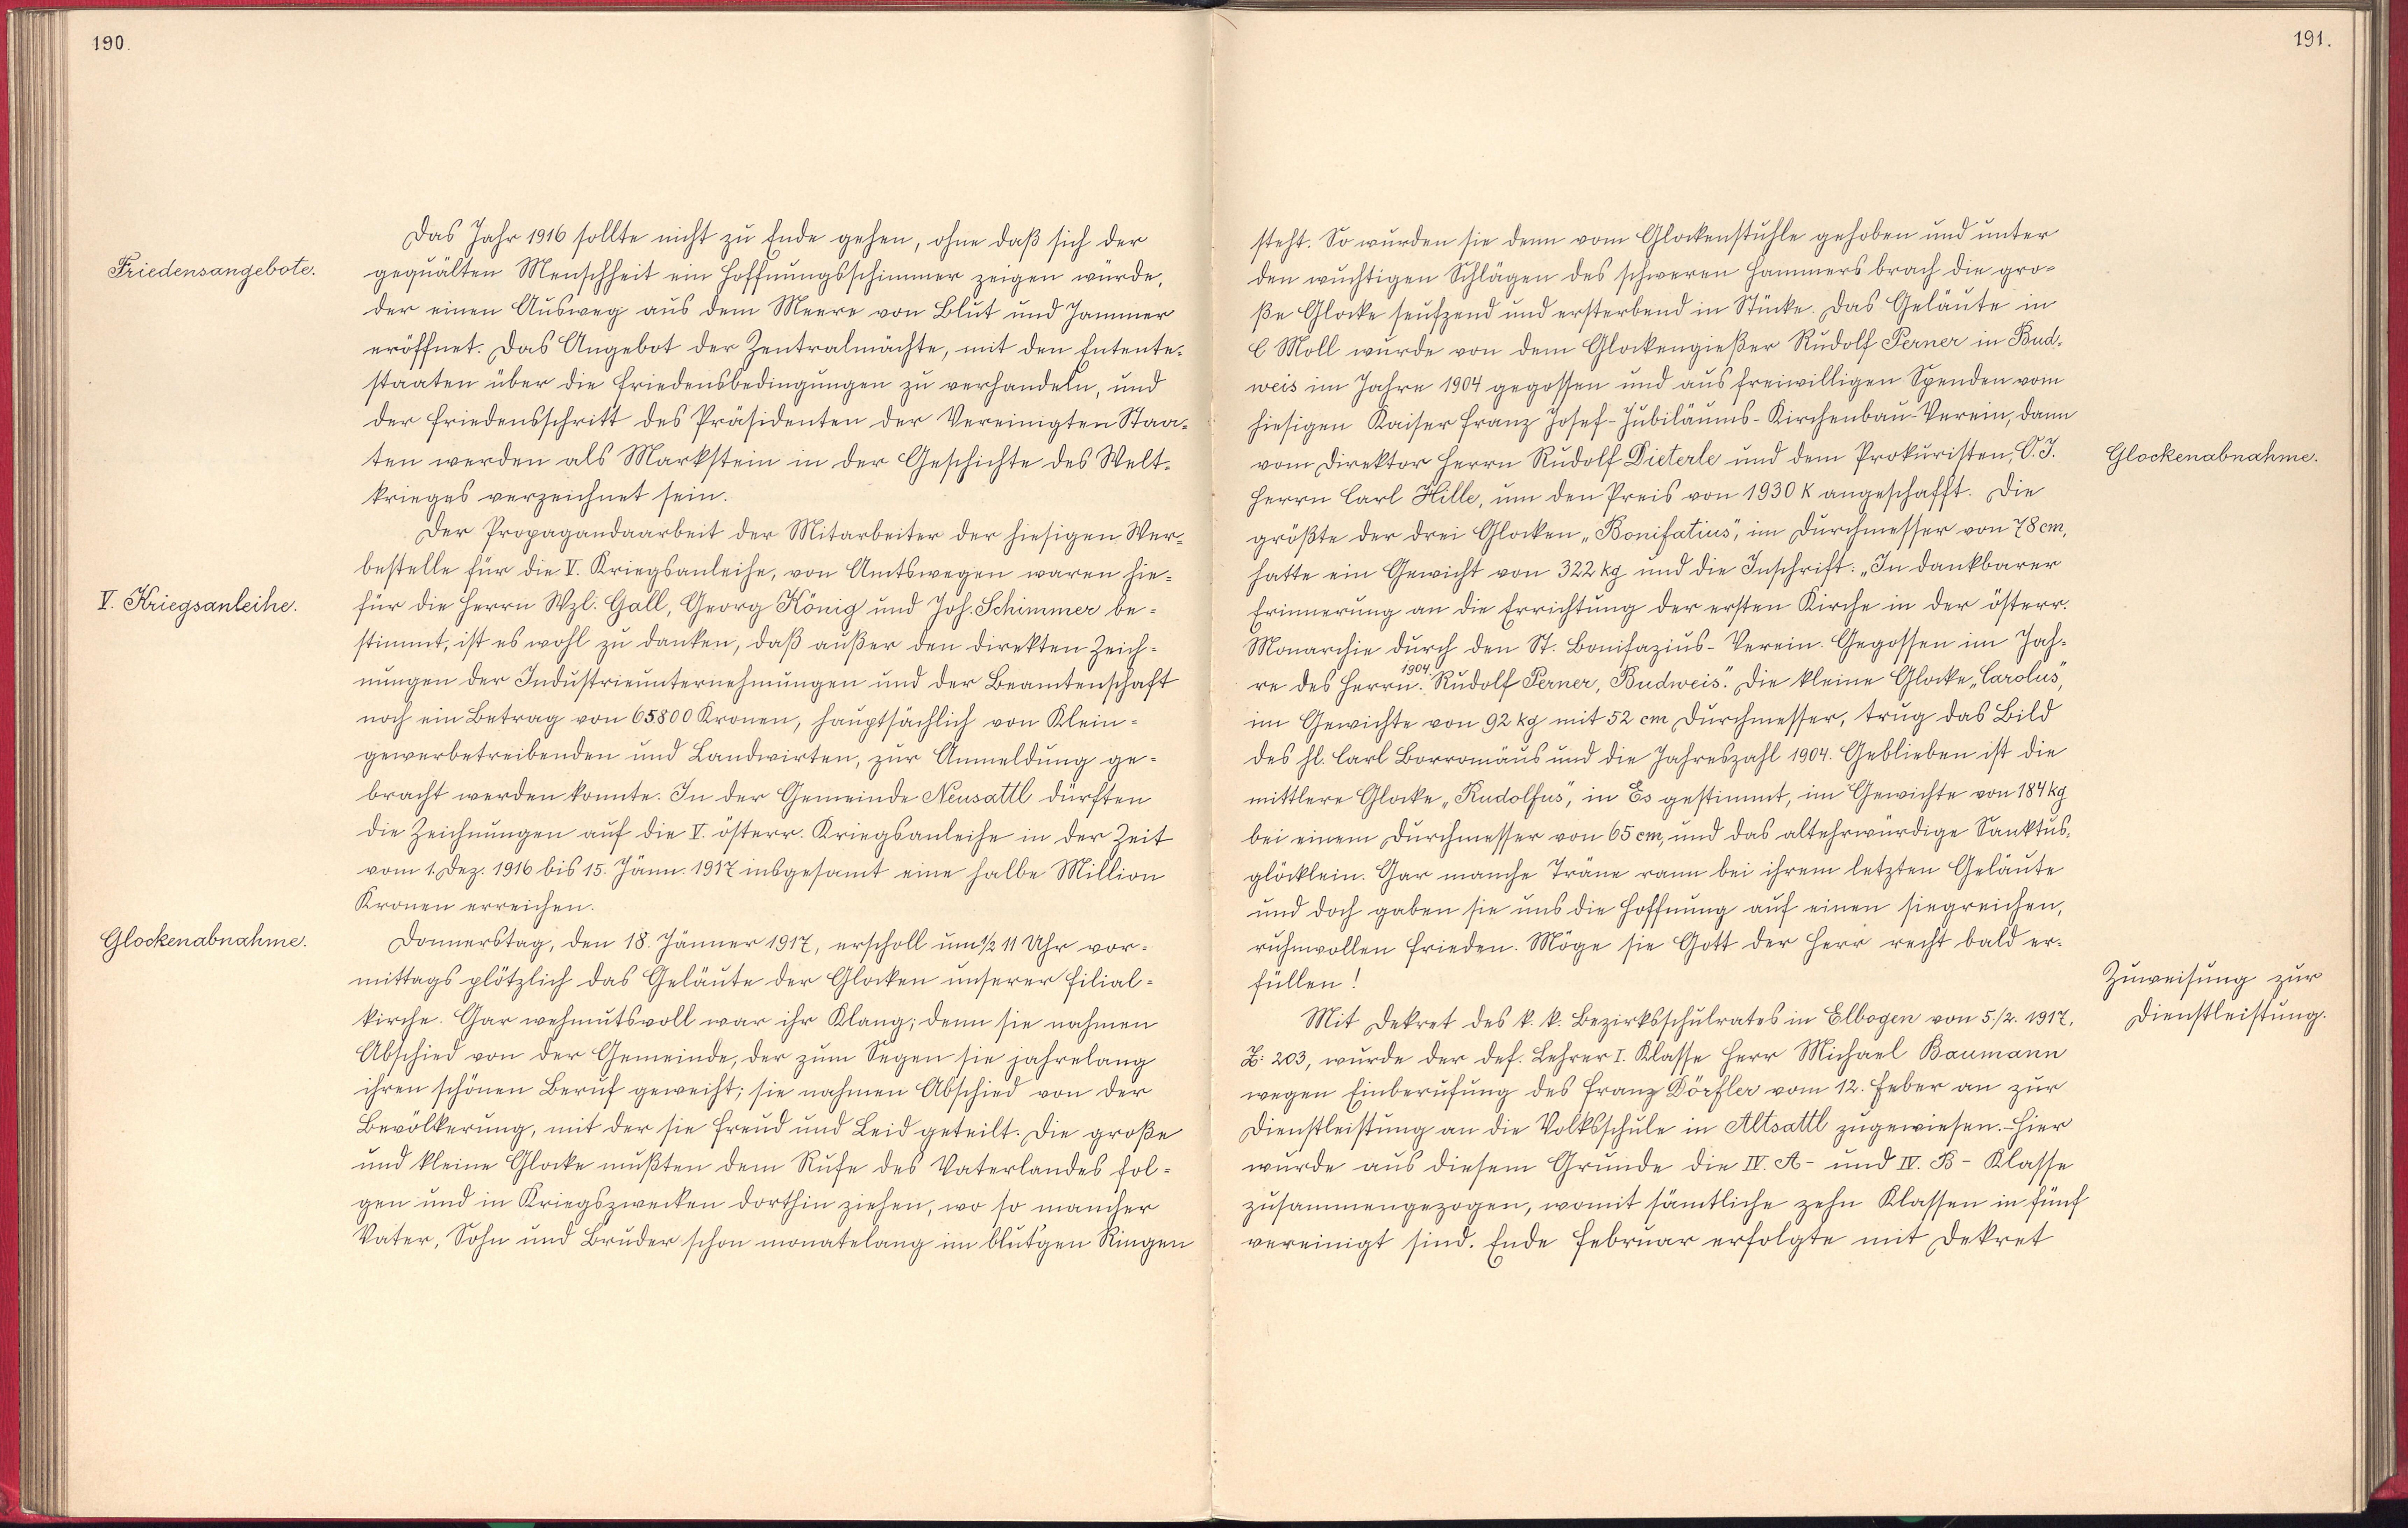 190.
Das Jahr 1916 sollte nicht zu Ende gehen, ohne daß sich der
Friedensangebote.
gequälten Menschheit ein Hoffnungsschimmer zeigen würde,
der einen Ausweg aus dem Meere von Blut und Jammer
eröffnet. Das Angebot der Zentralmächte, mit den Entente-
staaten über die Friedensbedingungen zu verhandeln, und
der Friedensschritt des Präsidenten der Vereinigten Staa-
ten werden als Markstein in der Geschichte des Welt-
krieges verzeichnet sein.
Der Propagandaarbeit der Mitarbeiter der hiesigen Wer-
bestelle für die V. Kriegsanleihe, von Amtswegen waren hie-
V. Kriegsanleihe.
für die Herrn Wzl. Gall, Georg König und Joh. Schimmer be-
stimmt, ist es wohl zu danken, daß außer den direkten Zeich-
nungen der Industrieunternehmungen und der Beamtenschaft
noch ein Betrag von 65800 Kronen, hauptsächlich von Klein-
gewerbetreibenden und Landwirten, zur Anmeldung ge-
bracht werden konnte. In der Gemeinde Neusattl dürften
die Zeichnungen auf die V. österr. Kriegsanleihe in der Zeit
vom 1. Dez. 1916 bis 15. Jänn. 1917 insgesamt eine halbe Million
Kronen erreichen.
Glockenabnahme.
Donnerstag, den 18. Jänner 1917, erscholl um ½ 11 Uhr vor-
mittags plötzlich das Geläute der Glocken unserer Filial-
kirche. Gar wehmutsvoll war ihr Klang; denn sie nahmen
Abschied von der Gemeinde, der zum Segen sie jahrelang
ihren schönen Beruf geweiht; sie nahmen Abschied von der
Bevölkerung, mit der sie Freud und Leid geteilt. Die große
und kleine Glocke mußten dem Rufe des Vaterlandes fol-
gen und in Kriegszwecken dorthin ziehen, wo so mancher
Vater, Sohn und Bruder schon monatelang im blut'gen Ringen
191.
steht. So wurden sie denn vom Glockenstuhle gehoben und unter
den wuchtigen Schlägen des schweren Hammers brach die gro-
ße Glocke seufzend und ersterbend in Stücke. Das Geläute in
C Moll wurde von dem Glockengießer Rudolf Perner in Bud-
weis im Jahre 1904 gegossen und aus freiwilligen Spenden vom
hiesigen Kaiser Franz Josef-Jubiläums-Kirchenbau-Verein, dann
vom Direktor Herrn Rudolf Dieterle und dem Prokuristen, O. J.
Glockenabnahme.
Herrn Carl Hille, um den Preis von 1930 K angeschafft. Die
größte der drei Glocken „Bonifatius", im Durchmesser von 78 cm,
hatte ein Gewicht von 322 kg und die Inschrift: „In dankbarer
Erinnerung an die Errichtung der ersten Kirche in der österr.
Monarchie durch den St. Bonifazius-Verein. Gegossen im Jah-
re des Herrn 1904. Rudolf Perner, Budweis". Die kleine Glocke „Carolus",
im Gewichte von 92 kg mit 52 cm Durchmesser, trug das Bild
des hl. Carl Borromäus und die Jahreszahl 1904. Geblieben ist die
mittlere Glocke „Rudolfus", in Es gestimmt, im Gewichte von 184 kg
bei einem Durchmesser von 65 cm, und das altehrwürdige Sanktus-
glöcklein. Gar manche Träne rann bei ihrem letzten Geläute
und doch gaben sie uns die Hoffnung auf einen siegreichen,
ruhmvollen Frieden. Möge sie Gott der Herr recht bald er-
füllen!
Zuweisung zur
Dienstleistung.
Mit Dekret des k. k. Bezirksschulrates in Elbogen von 5./2. 1917,
Z: 203, wurde der def. Lehrer I. Klasse Herr Michael Baumann
wegen Einberufung des Franz Dörfler vom 12. Feber an zur
Dienstleistung an die Volksschule in Altsattl zugewiesen.-Hier
wurde aus diesem Grunde die IV. A- und IV. B- Klasse
zusammengezogen, womit sämtliche zehn Klassen in fünf
vereinigt sind. Ende Februar erfolgte mit Dekret